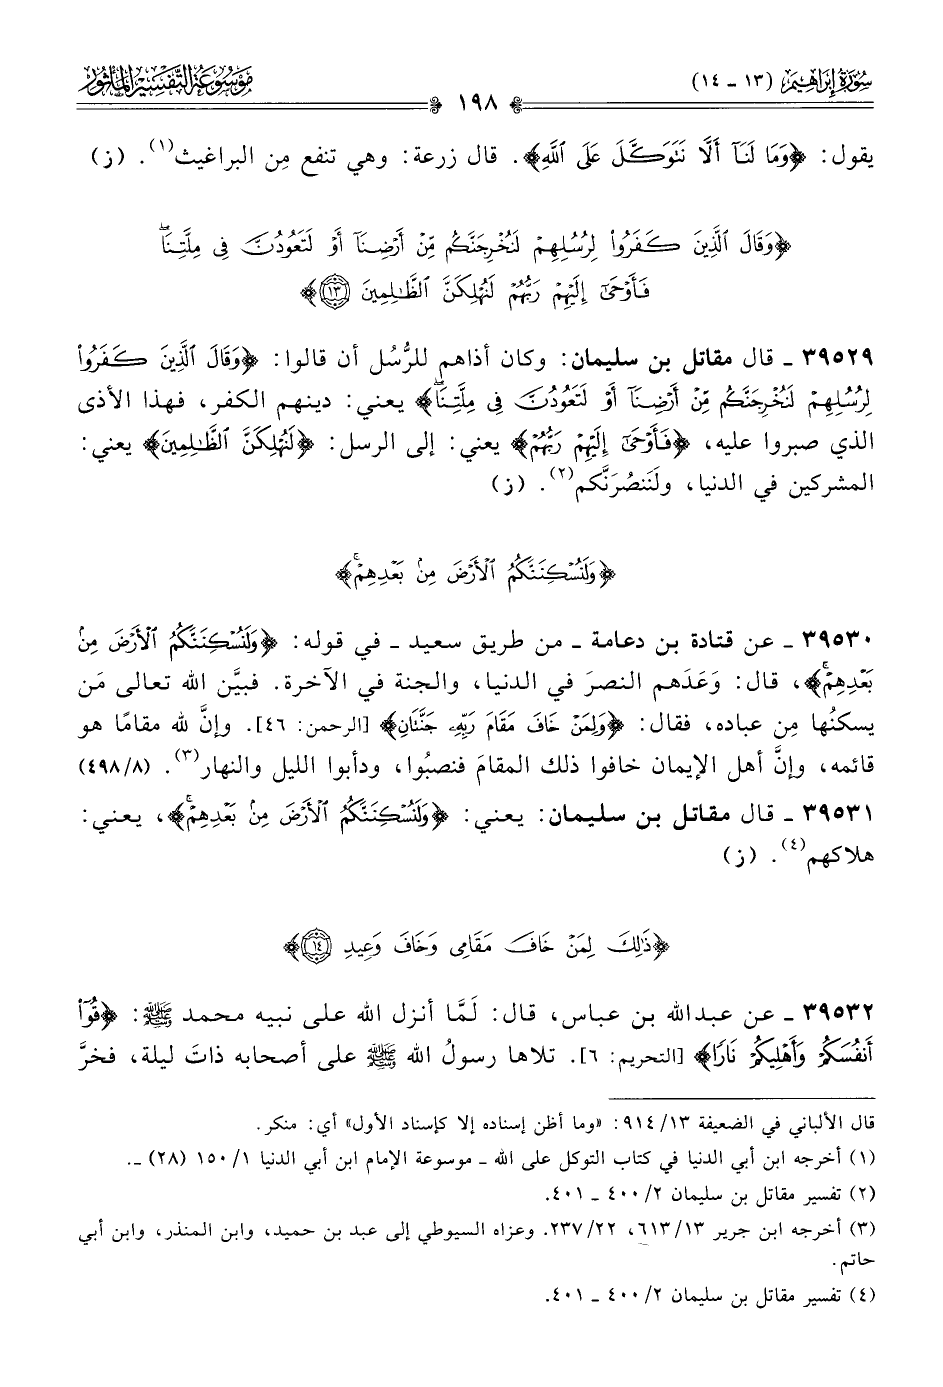 سُورَةُ إِبْرَاهِيمَ (١٣ - ١٤)
١٩٨
مَوْسُوعَةُ التَّفْسِيرِ المَأْثُور
يقول: ﴿وَمَا لَنَآ أَلَّا نَتَوَكَّلَ عَلَى ٱللَّهِ﴾. قال زرعة: وهي تنفع مِن البراغيث(١). (ز)
﴿وَقَالَ ٱلَّذِينَ كَفَرُوا۟ لِرُسُلِهِمْ لَنُخْرِجَنَّكُم مِّنْ أَرْضِنَآ أَوْ لَتَعُودُنَّ فِى مِلَّتِنَا ۖ
فَأَوْحَىٰٓ إِلَيْهِمْ رَبُّهُمْ لَنُهْلِكَنَّ ٱلظَّٰلِمِينَ ١٣﴾
٣٩٥٢٩ ـ قال مقاتل بن سليمان: وكان أذاهم للرُّسُل أن قالوا: ﴿وَقَالَ ٱلَّذِينَ كَفَرُوا۟
لِرُسُلِهِمْ لَنُخْرِجَنَّكُم مِّنْ أَرْضِنَآ أَوْ لَتَعُودُنَّ فِى مِلَّتِنَا ۖ﴾ يعني: دينهم الكفر، فهذا الأذى
الذي صبروا عليه، ﴿فَأَوْحَىٰٓ إِلَيْهِمْ رَبُّهُمْ﴾ يعني: إلى الرسل: ﴿لَنُهْلِكَنَّ ٱلظَّٰلِمِينَ﴾ يعني:
المشركين في الدنيا، ولَنَنصُرَنَّكم(٢). (ز)
﴿وَلَنُسْكِنَنَّكُمُ ٱلْأَرْضَ مِنۢ بَعْدِهِمْ ۚ﴾
٣٩٥٣٠ ـ عن قتادة بن دعامة ـ من طريق سعيد ـ في قوله: ﴿وَلَنُسْكِنَنَّكُمُ ٱلْأَرْضَ مِنۢ
بَعْدِهِمْ ۚ﴾، قال: وَعَدَهم النصرَ في الدنيا، والجنة في الآخرة. فبيَّن الله تعالى مَن
يسكنُها مِن عباده، فقال: ﴿وَلِمَنْ خَافَ مَقَامَ رَبِّهِۦ جَنَّتَانِ﴾ [الرحمن: ٤٦]. وإنَّ لله مقامًا هو
قائمه، وإنَّ أهل الإيمان خافوا ذلك المقامَ فنصبُوا، ودأبوا الليل والنهار(٣). (٤٩٨/٨)
٣٩٥٣١ ـ قال مقاتل بن سليمان: يعني: ﴿وَلَنُسْكِنَنَّكُمُ ٱلْأَرْضَ مِنۢ بَعْدِهِمْ ۚ﴾، يعني:
هلاكهم(٤). (ز)
﴿ذَٰلِكَ لِمَنْ خَافَ مَقَامِى وَخَافَ وَعِيدِ ١٤﴾
٣٩٥٣٢ ـ عن عبدالله بن عباس، قال: لَمَّا أنزل الله على نبيه محمد ﷺ: ﴿قُوٓا۟
أَنفُسَكُمْ وَأَهْلِيكُمْ نَارًا﴾ [التحريم: ٦]. تلاها رسولُ الله ﷺ على أصحابه ذاتَ ليلة، فخرَّ
قال الألباني في الضعيفة ٩١٤/١٣: «وما أظن إسناده إلا كإسناد الأول» أي: منكر.
(١) أخرجه ابن أبي الدنيا في كتاب التوكل على الله ـ موسوعة الإمام ابن أبي الدنيا ١٥٠/١ (٢٨) ـ.
(٢) تفسير مقاتل بن سليمان ٤٠٠/٢ ـ ٤٠١.
(٣) أخرجه ابن جرير ٦١٣/١٣، ٢٣٧/٢٢. وعزاه السيوطي إلى عبد بن حميد، وابن المنذر، وابن أبي
حاتم.
(٤) تفسير مقاتل بن سليمان ٤٠٠/٢ ـ ٤٠١.